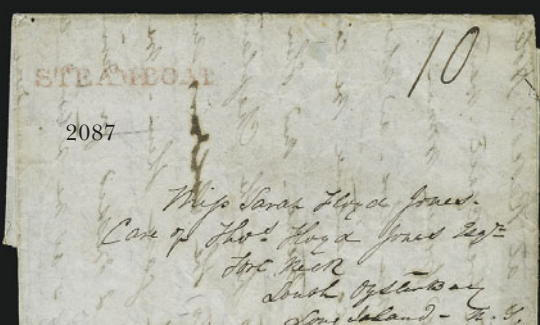 STEAMBOAT
10
2087
Miss Sarah Floyd Jones.
Care of Thos. Floyd Jones Esqr
Fort Neck
South Oyster Bay
Long Island - N. Y.